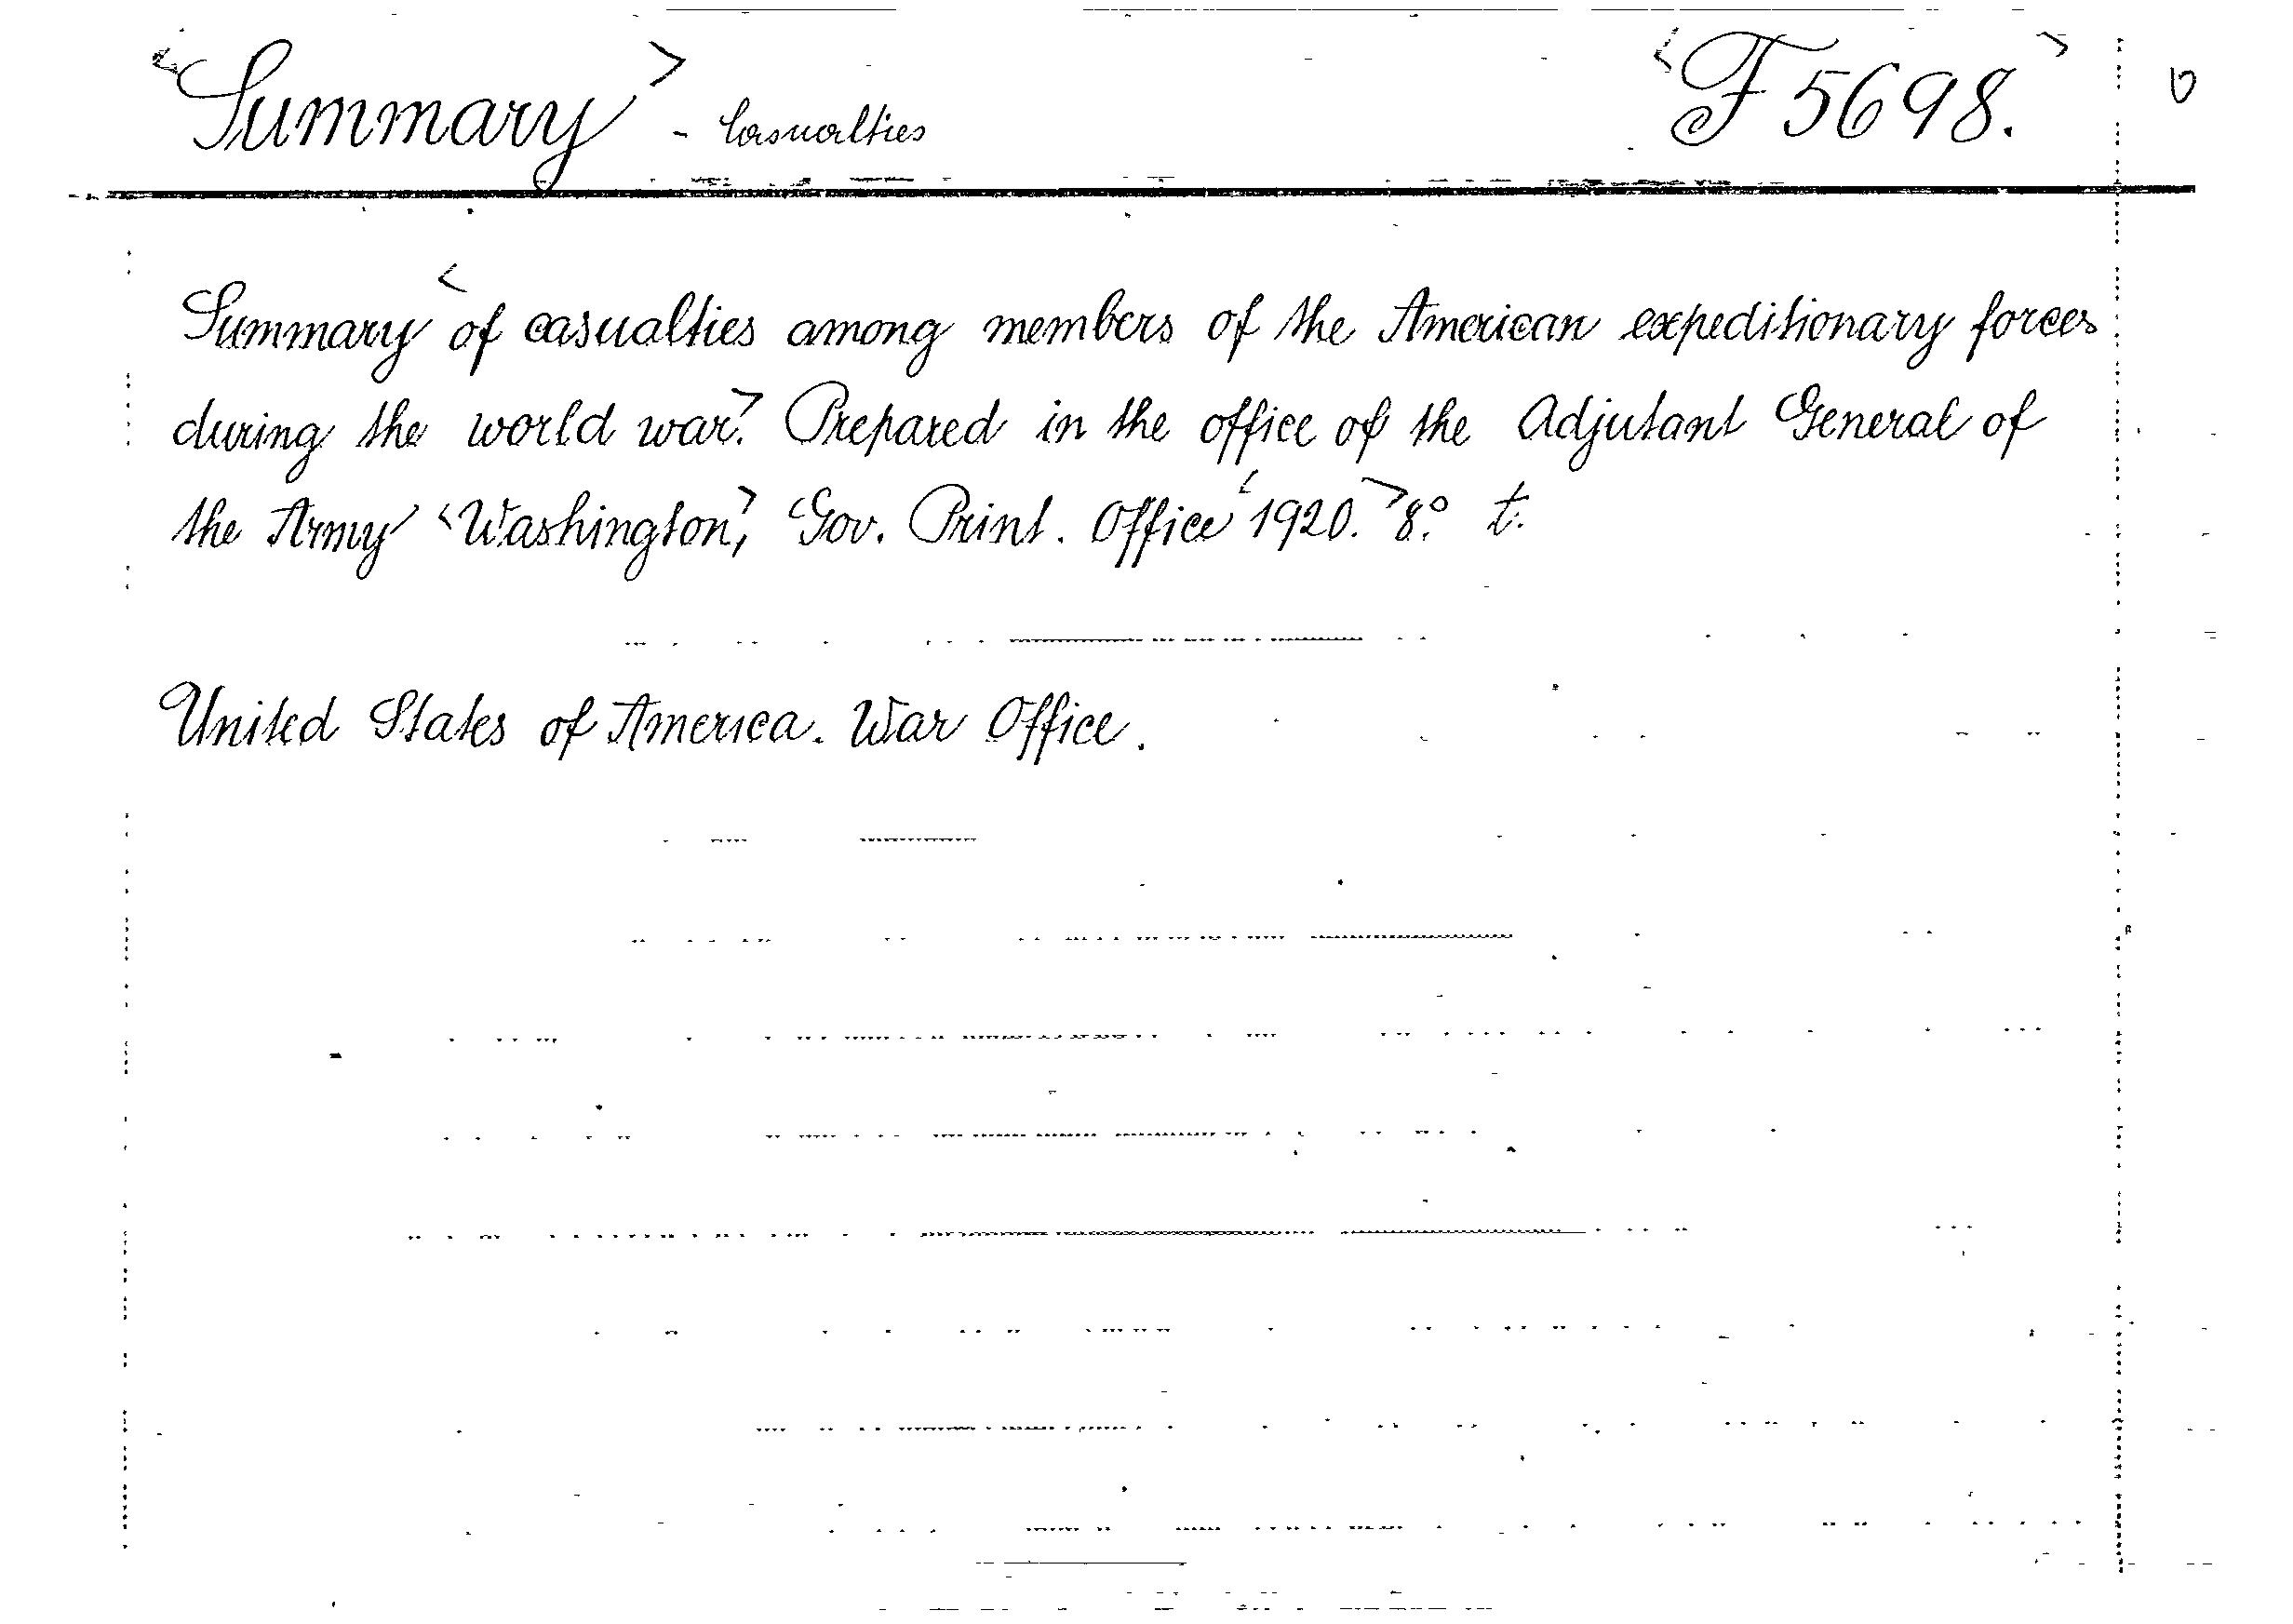 <Summary> - Casualties <F 5698.> O
Summary <of casualties among members of the American expeditionary forces
during the world war>. Prepared in the office of the Adjutant General of
the Army <Washington>, Gov. Print. Office <1920.> 8º. t.
United States of America. War Office.